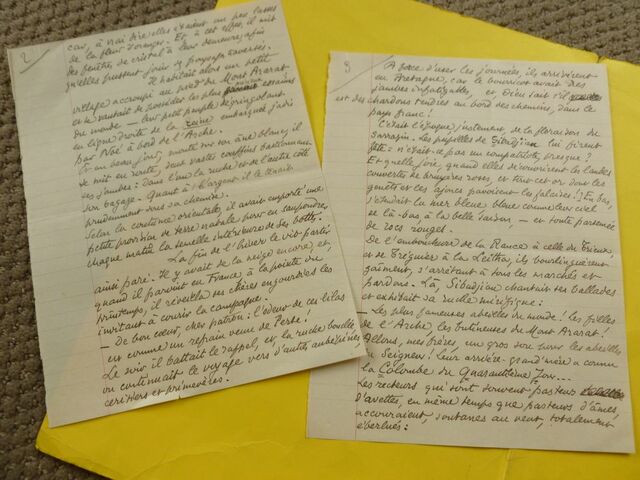 2/
car, à vrai dire elles étaient un peu lasses
de la fleur d'oranger. Et à cet effet, il mit
des fenêtres de cristal à leur demeure afin
qu'elles pussent jouir du paysage traversé.
Il habitait alors un petit
village accroupi au pied du Mont Ararat
et se vantait de posséder les plus essaims
du monde — leur petit peuple dégringolant
en ligne droite de la reine embarquée jadis
par Noé à bord de l'Arche.
Or un beau jour, monté sur son âne blanc, il
se mit en route, deux vastes couffins ballonnant
ses jambes: dans l'un la ruche et de l'autre côté
son bagage. Quant à l'argent il le tenait
prudemment sous sa chemise.
Selon la coutume orientale, il avait emporté une
petite provision de terre natale pour en saupoudrer
chaque matin la semelle intérieure de ses bottes.
La fin de l'hiver le vit parti
ainsi paré. Il y avait de la neige encore et,
quand il parvint en France à la pointe du
printemps, il réveilla ses chères engourdies les
invitant à courir la campagne.
— De bon cœur, cher patron: l'odeur de ces lilas
est comme un refrain venu de Perse!
Le soir il battait le rappel, et, la ruche bouclée
on continuait le voyage vers d'autres aubépines,
cerisiers et primevères.
3
A force d'user les journées, ils arrivèrent
en Bretagne, car le bourricot avait des
jambes infatigables, et Dieu sait s'il
est des chardons tendres au bord des chemins, dans le
pays franc!
C'était l'époque justement de la floraison du
sarrasin. Les pupilles de Sibadjian lui firent
fête: n'était-ce pas un compatriote, presque?
Et quelle joie, quand elles découvrirent les landes
couvertes de bruyères roses, et tout cet or dont les
genêts et les ajoncs pavoisent les falaises! En bas,
s'étendait la mer bleue bleue comme leur ciel
de là-bas à la belle saison, — et toute parsemée
de rocs rouges.
De l'embouchure de la Rance à celle du Trieux,
et de Tréguier à la Leïtha, ils bourlinguèrent
gaiment, s'arrêtant à tous les marchés et
pardons. Là, Sibadjian chantait ses ballades
et exhibait sa ruche mirifique:
— Les plus fameuses abeilles du monde! les filles
de l'Arche, les butineuses du Mont Ararat!
Allons, mes frères, un gros sou pour les abeilles
du Seigneur! Leur arrière-grand'mère a connu
la Colombe du Quarantième Jour...
Les recteurs qui sont souvent pasteurs
d'avettes, en même temps que pasteurs d'âmes,
accouraient, soutanes au vent, totalement
éberlués: